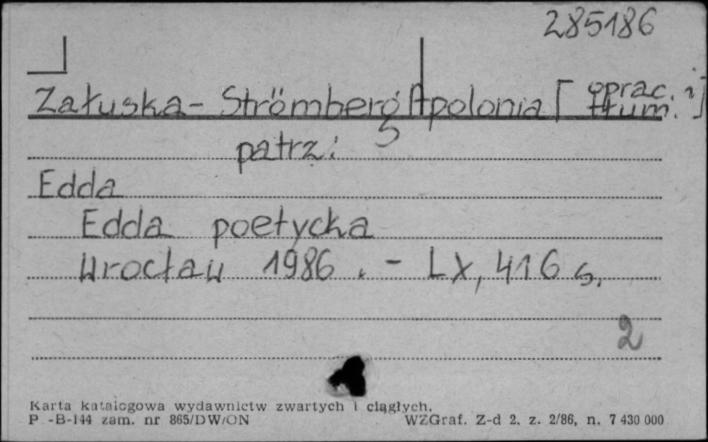 285186
Załuska-Strömberg Apolonia [oprac. i tłum.]
patrz:
Edda
Edda poetycka
Wrocław 1986. - LX, 416 s.
2
Karta katalogowa wydawnictw zwartych i ciągłych.
P -B-144 zam. nr 865/DW/ON WZGraf. Z-d 2. z. 2/86, n. 7 430 000